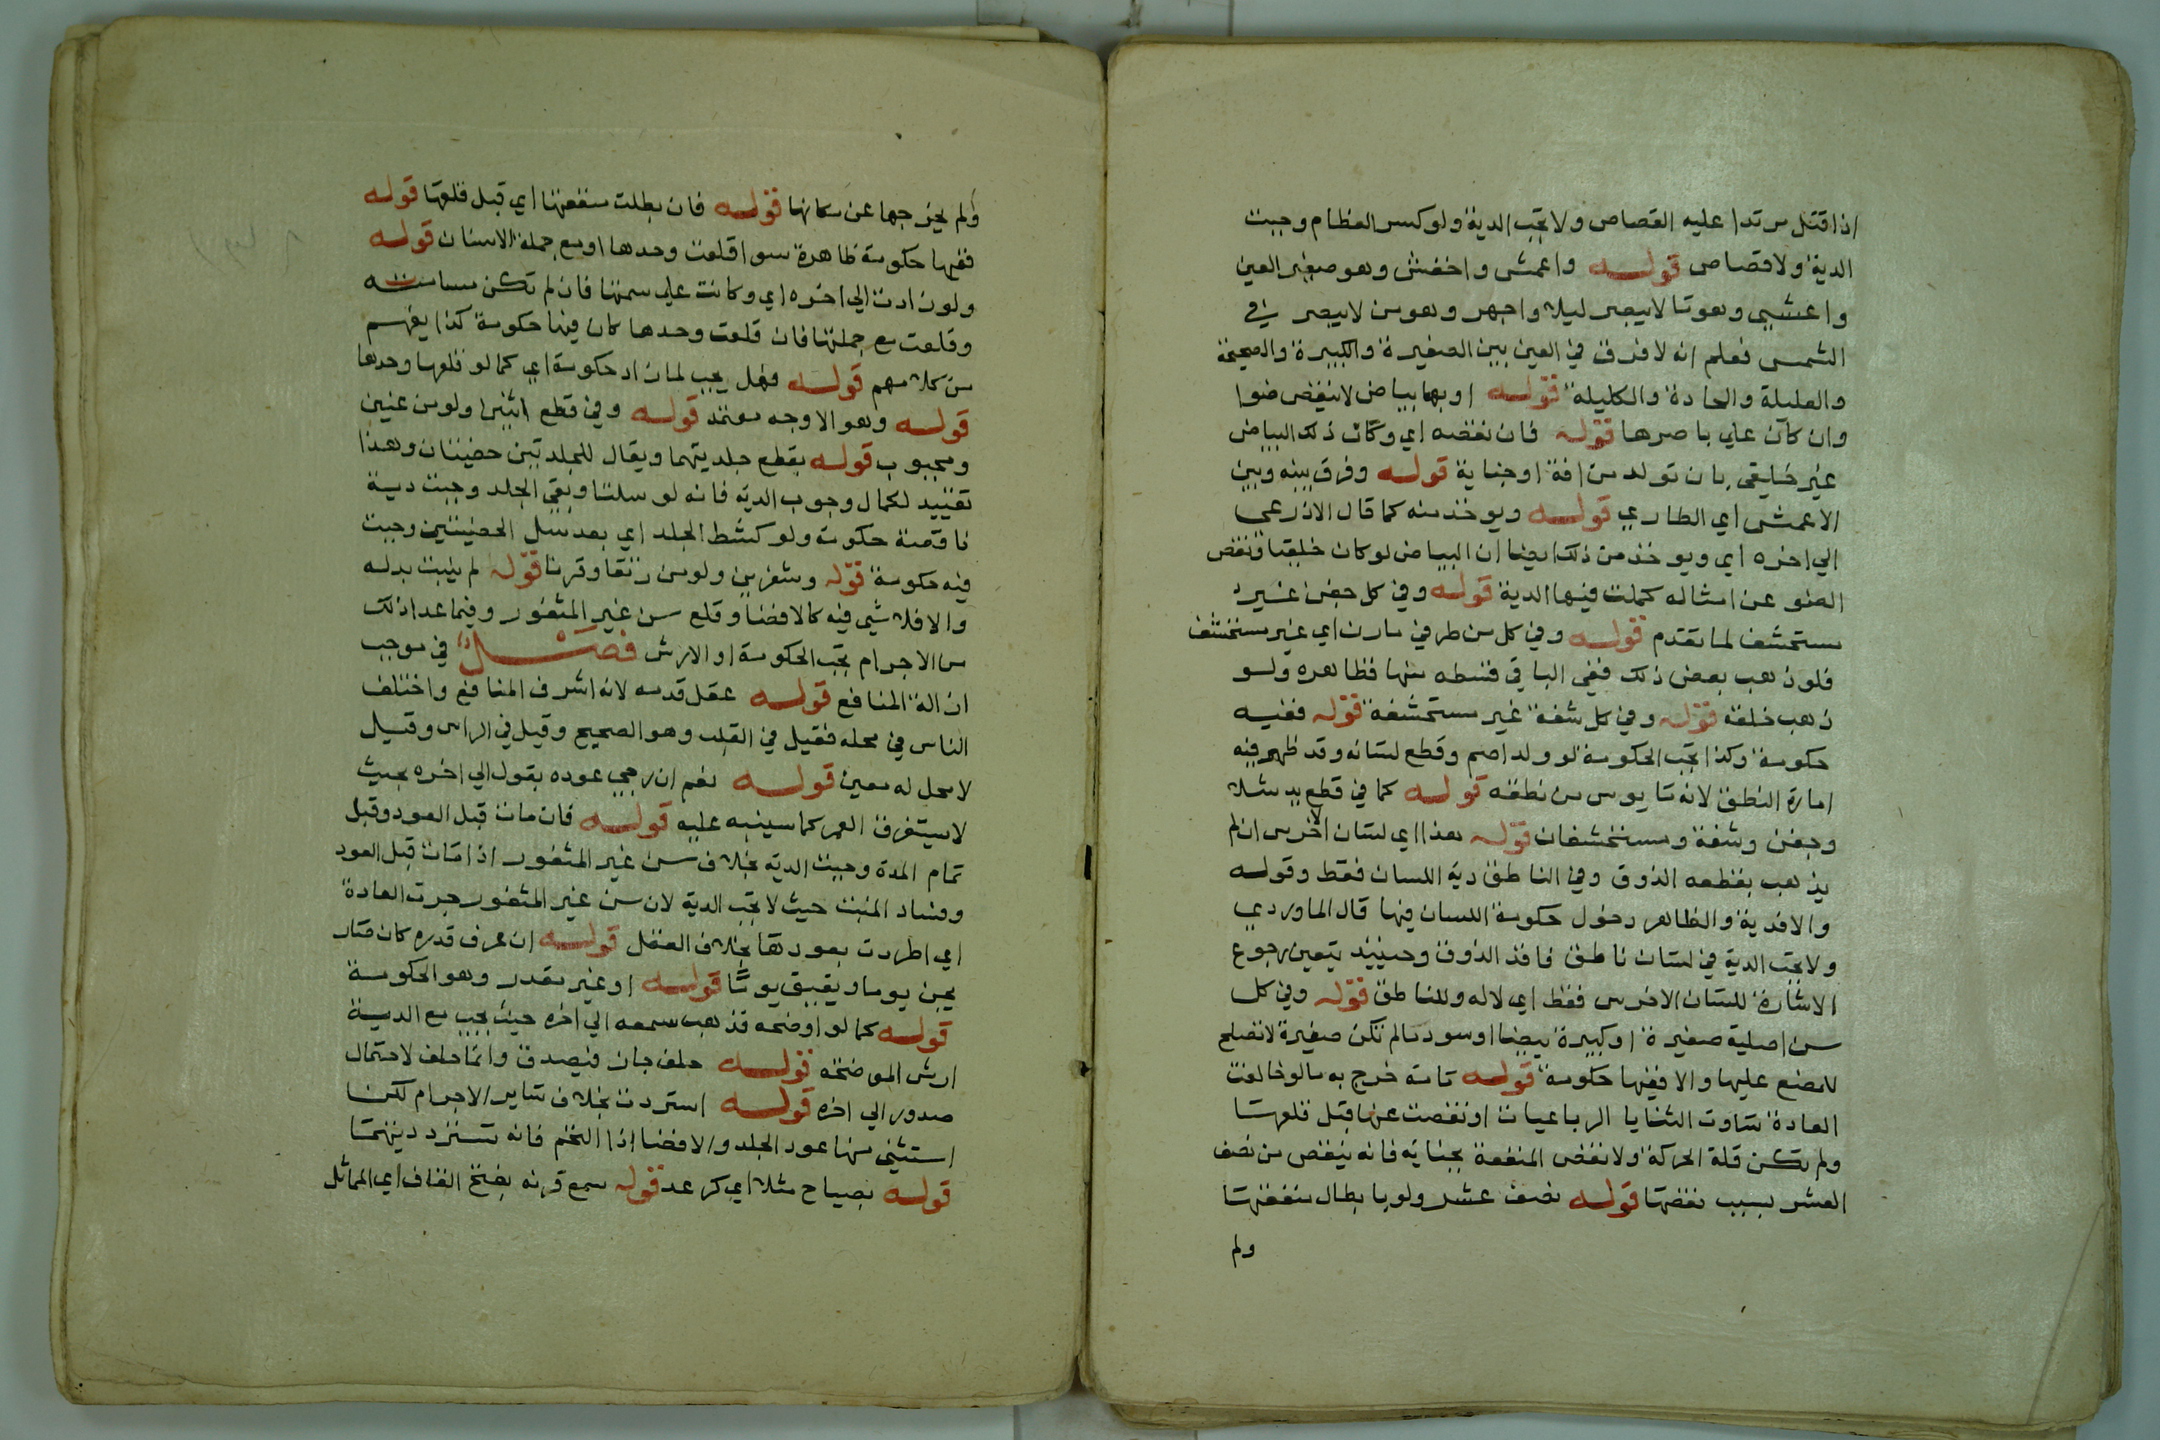 اذا قتل مرتدا عليه القصاص ولا تجب الدية ولو كسر العظام وجبت
الدية ولا قصاص قوله واعمش واخفش وهو صغير العين
واعشي وهو من لا يبصر ليلا واجهر وهو من لا يبصر في
الشمس فعلم انه لا فرق في العين بين الصغيرة والكبيرة والصحيحة
والعليلة والحادة والكليلة قوله او بها بياض لا ينقص ضوا
وان كان علي باصرها قوله فان نقصه اي وكان ذلك البياض
غير خليقي بان تولد من افة او جناية قوله وفرق بينه وبين
الاعمش اي الطاري قوله ويوخذ منه كما قال الاذرعي
الي اخره اي ويوخذ من ذلك ايضا ان البياض لو كان خلقيا ونقص
الضو عن امثاله كملت فيها الدية قوله وفي كل جفن غير
مستحشف لما تقدم قوله وفي كل من طرفي مارن اي غير مستحشف
فلو ذهب بعض ذلك ففي الباقي قسطه منها فظاهره ولو
ذهب خلقة قوله وفي كل شفة غير مستحشفة قوله ففيه
حكومة وكذا تجب الحكومة لو ولد اصم وقطع لسانه وقد ظهر فيه
امارة النطق لانه مايوس من نطقه قوله كما في قطع يد شلا
وجفن وشفة ومستحشفان قوله هذا اي لسان الاخرس ان لم
يذهب بقطعه الذوق وفي الناطق دية اللسان فقط وقوله
والا فدية والظاهر دخول حكومة اللسان فيها قال الماوردي
ولا تجب الدية في لسان ناطق فاقد الذوق وحينيذ يتعين رجوع
الاشارة للسان الاخرس فقط اي لا له وللناطق قوله وفي كل
سن اصلية صغيرة او كبيرة بيضا او سودا ما لم تكن صغيرة لا تصلح
للمضع عليها والا ففيها حكومة قوله تامة خرج به ما لو خالفت
العادة تساوت الثنايا الرباعيات او نقصت عنها قبل قلعها
ولم تكن قلة الحركة ولا نقص المنفعة بجناية فانه ينقص من نصف
العشر بسبب نقضها قوله نصف عشر ولو بابطال منفعتها
ولم
ولم يخرجها عن مكانها قوله فان بطلت منفعتها اي قبل قلعها قوله
ففيها حكومة ظاهرة سوا قلعت وحدها او مع جملة الاسنان قوله
ولو زادت الي اخره اي وكانت علي سمتها فان لم تكن مسامته
وقلعت مع جملتها فان قلعت وحدها كان فيها حكومة كذا يفهم
من كلامهم قوله فهل يجب لما زاد حكومة اي كما لو قلعها وحدها
قوله وهو الاوجه معتمد قوله وفي قطع اثنين ولو من عنين
ومجبوب قوله بقطع جلديتهما ويقال للجلدتين خصيتان وهذا
تقييد لكمال وجوب الدية فانه لو سلتا وبقي الجلد وجبت دية
ناقصة حكومة ولو كشط الجلد اي بعد سل الخصيتين وجبت
فيه حكومة قوله وشفرين ولو من رتقا وقرنا قوله لم ينبت بدله
والا فلا شي فيه كالافضا وقلع سن غير المثغور وفيما عدا ذلك
من الاجرام تجب الحكومة او الارش فصل في موجب
ازالة المنافع قوله عقل قدمه لانه اشرف المنافع واختلف
الناس في محله فقيل في القلب وهو الصحيح وقيل في الراس وقيل
لا محل له معين قوله نعم ان رجي عوده بقول الي اخره بحيث
لا يستغرق العمر كما سينبه عليه قوله فان مات قبل العود وقبل
تمام المدة وجبت الدية بخلاف سن غير المثغور اذا مات قبل العود
وفساد المنبت حيث لا تجب الدية لان سن غير المثغور جرت العادة
اي اطردت بعودها بخلاف العقل قوله ان عرف قدره كان صار
يجن يوما ويفيق يوما قوله او غير مقدر وهو الحكومة
قوله كما لو اوضحه فذهب سمعه الي اخره حيث يجب مع الدية
ارش الموضحة قوله حلف جان فيصدق وانما حلف لاحتمال
صدور الي اخره قوله استردت بخلاف ساير الاجرام لكن
استثني منها عود الجلد والافضا اذا التحم فانه تسترد ديتهما
قوله بصياح مثلا اي كرعد قوله سمع قرنه بفتح القاف اي المماثل